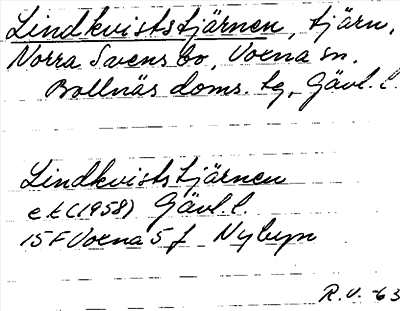 Lindkvistst​järnen, tjärn,
Norra Svensbo, Voxna sn.
Bollnäs doms. tg, Gävl. l.
Lindkviststjärnen
ek (1958) Gävl. l.
15 F Voxna 5 f Nybyn
R.V. -63